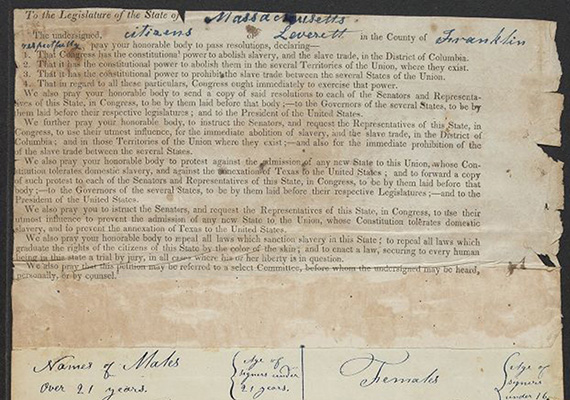 To the Legislature of the State of Massachusetts
The undersigned, citizens of Leverett in the County of Franklin
respectfully, pray your honorable body to pass resolutions, declaring—
1. That Congress has the constitutional power to abolish slavery, and the slave trade, in the District of Columbia.
2. That it has the constitutional power to abolish them in the several Territories of the Union, where they exist.
3. That it has the constitutional power to prohibit the slave trade between the several States of the Union.
4. That in regard to all these particulars, Congress ought immediately to exercise that power.
We also pray your honorable body to send a copy of said resolutions to each of the Senators and Representa-
tives of this State, in Congress, to be by them laid before that body;—to the Governors of the several States, to be by
them laid before their respective legislatures; and to the President of the United States.
We further pray your honorable body, to instruct the Senators, and request the Representatives of this State, in
Congress, to use their utmost influence, for the immediate abolition of slavery, and the slave trade, in the District of
Columbia; and in those Territories of the Union where they exist;—and also for the immediate prohibition of the
of the slave trade between the several States.
We also pray your honorable body to protest against the admission of any new State to this Union, whose Con-
stitution tolerates domestic slavery, and against the annexation of Texas to the United States; and to forward a copy
of such protest to each of the Senators and Representatives of this State, in Congress, to be by them laid before that
body;—to the Governors of the several States, to be by them laid before their respective Legislatures;—and to the
President of the United States.
We also pray you to istruct the Senators, and request the Representatives of this State, in Congress, to use their
utmost influence to prevent the admission of any new State to the Union, whose Constitution tolerates domestic
slavery, and to prevent the annexation of Texas to the United States.
We also pray your honorable body to repeal all laws which sanction slavery in this State; to repeal all laws which
graduate the rights of the citizens of this State by the color of the skin; and to enact a law, securing to every human
being in this state a trial by jury, in all cases where his or her liberty is in question.
We also pray that this petition may be referred to a select Committee, before whom the undersigned may be heard,
personally, or by counsel.
Names of Males
over 21 years.
Age of
signers under
21 years.
Females
Age of
signers
under 16